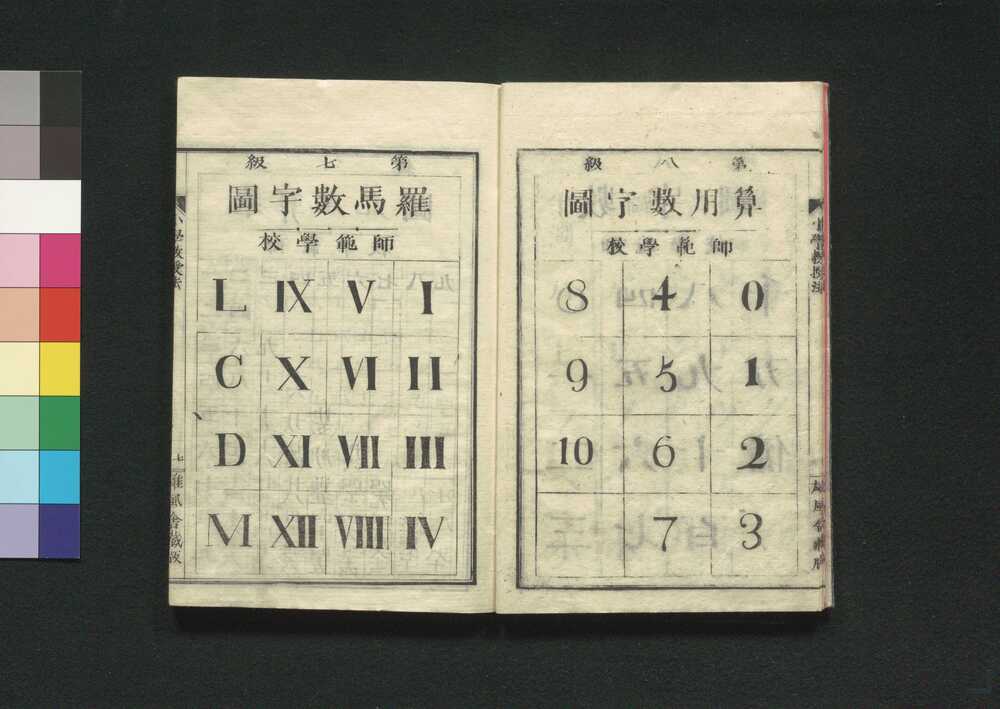 第八級
算用數字圖
師範學校
0 1 2 3
4 5 6 7
8 9 10
小學教授法
第七級
羅馬數字圖
師範學校
I II III IV
V VI VII VIII
IX X XI XII
L C D M
小學教授法
七